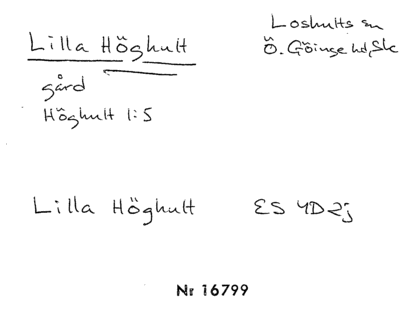 Lilla Höghult
Loshults sn
Ö. Göinge hd, Sk
gård
Höghult 1:5
Lilla Höghult ES 4D2j
Nr 16799